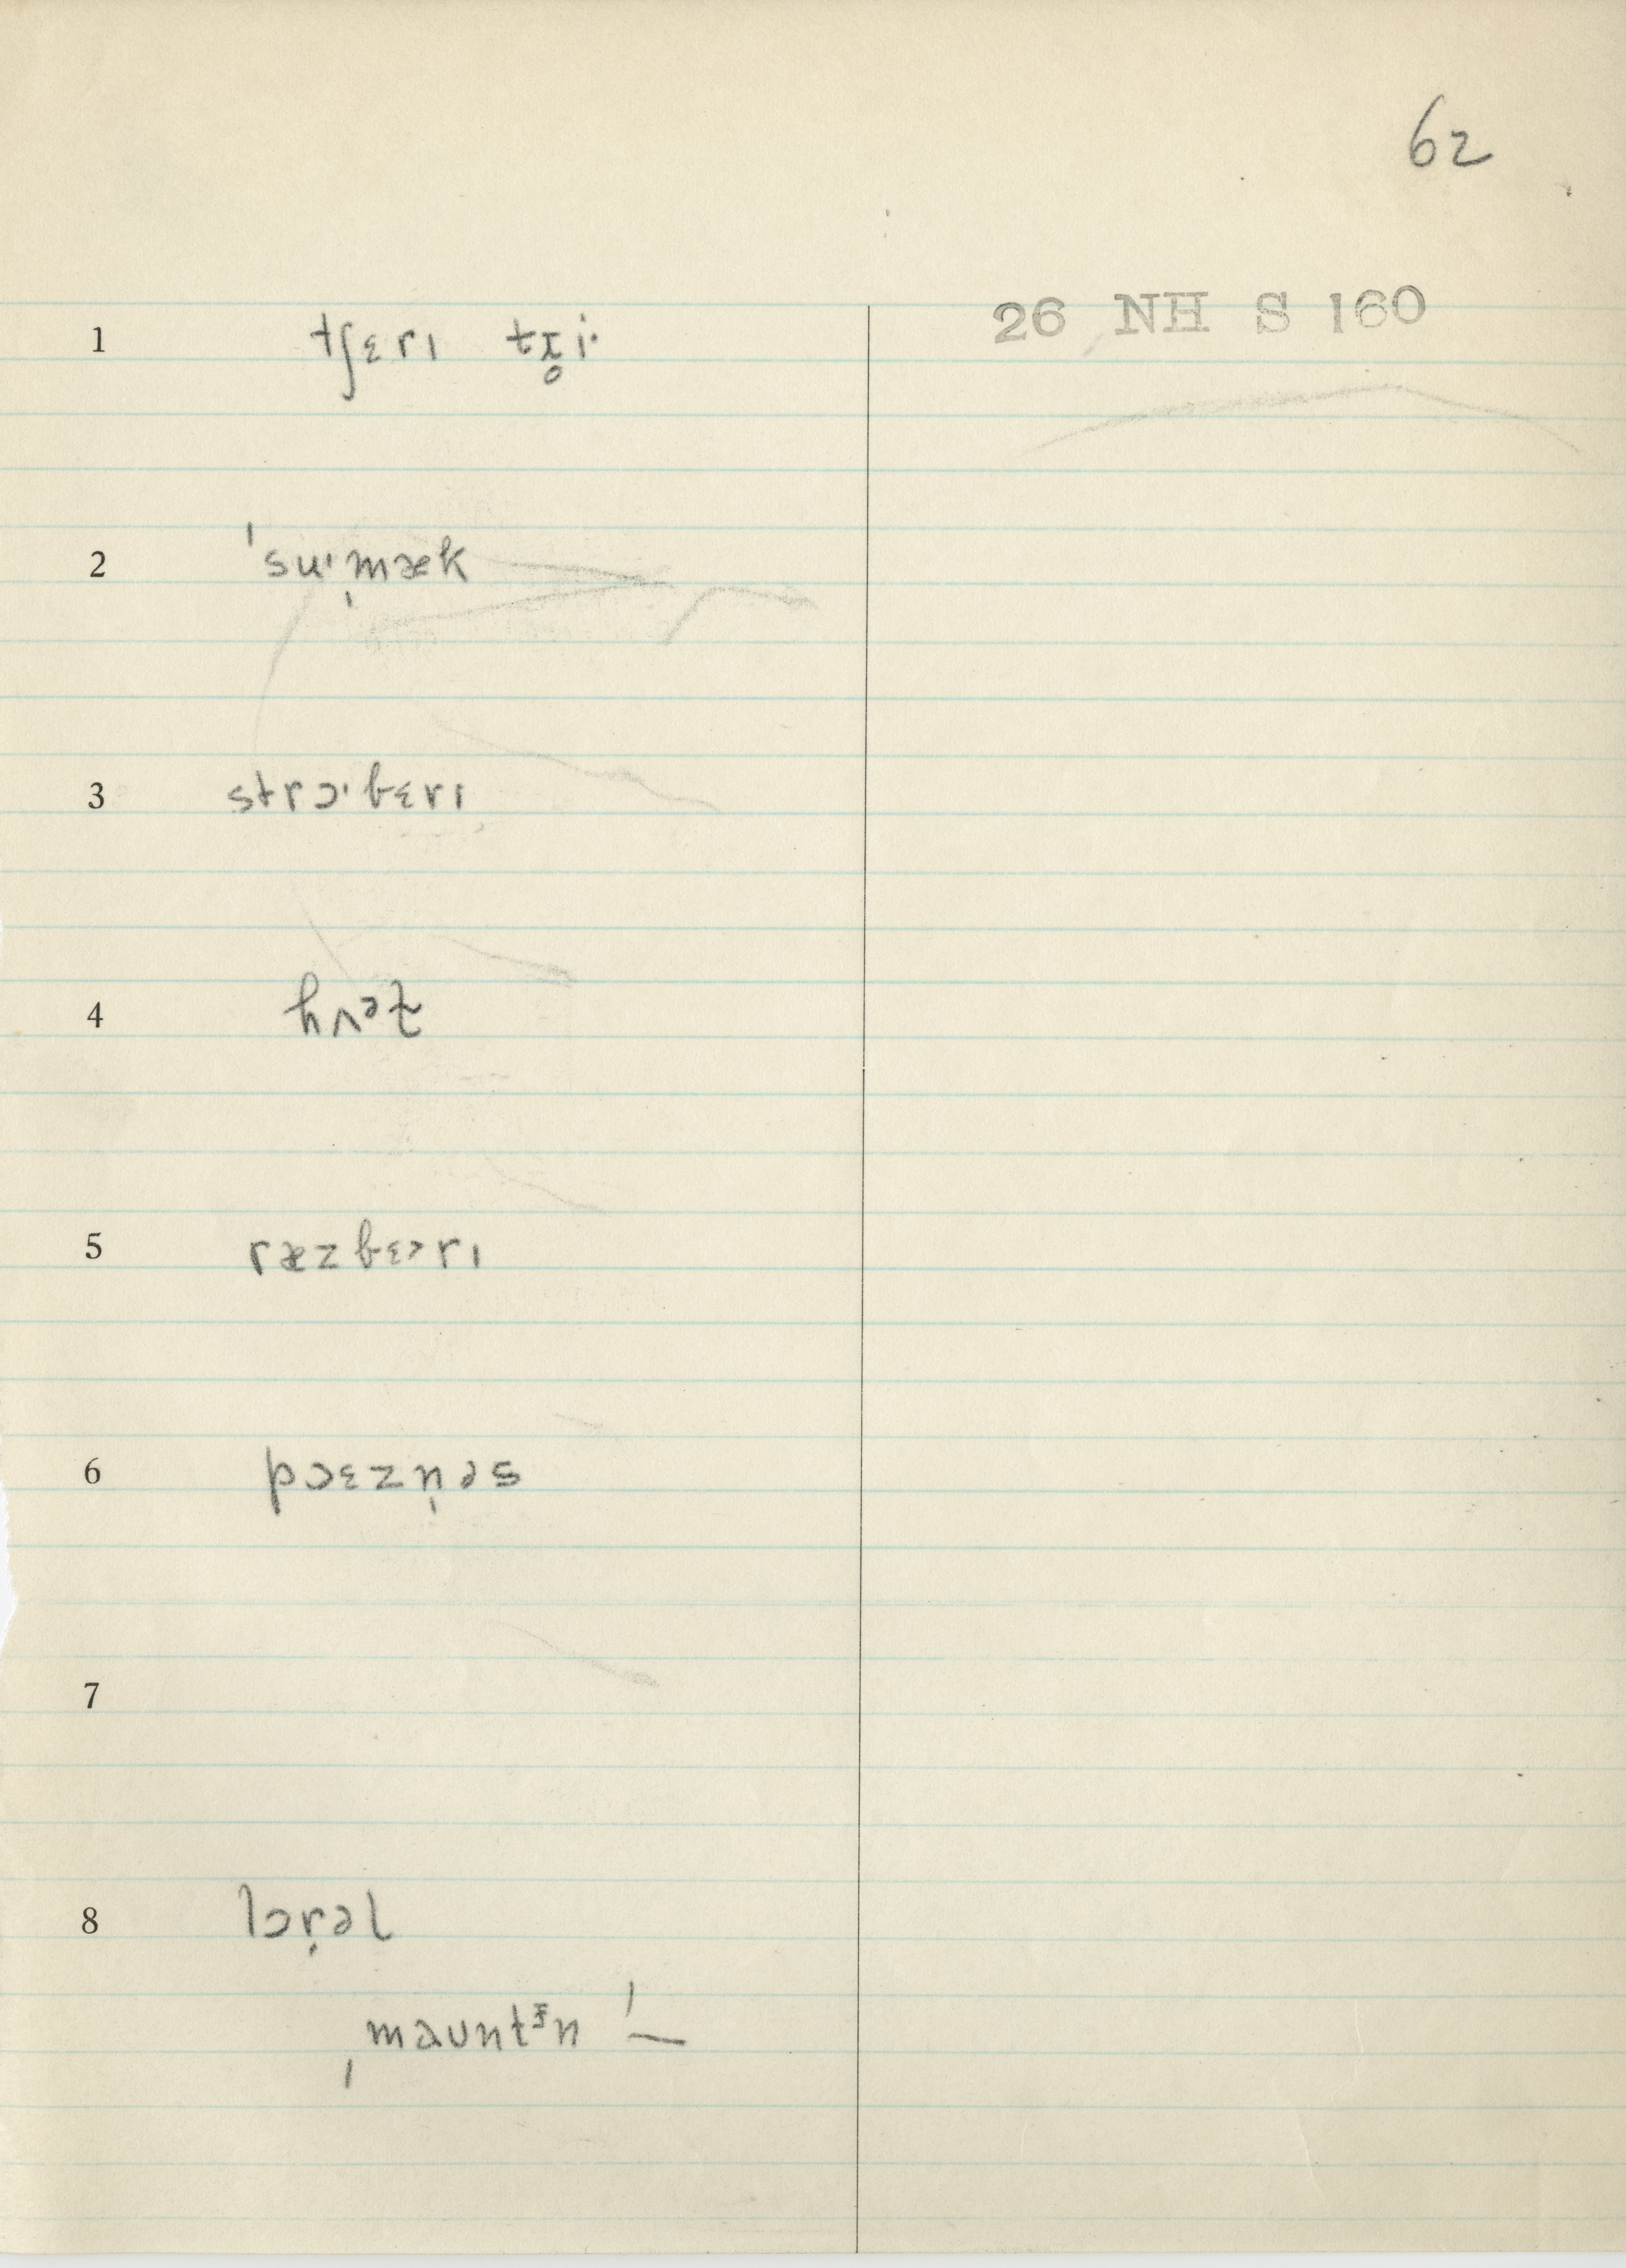 62
26 NH S 160
1 tʃɛrɪ tɹ̥i·
2 ˈsuˑˌmæk
3 strɔˑbɛrɪ
4
5 ræzbɛ˃rɪ
6 pɔɛzn̩əs
7
8 lɔr̩əl
ˌmauntᵻn ˈ—